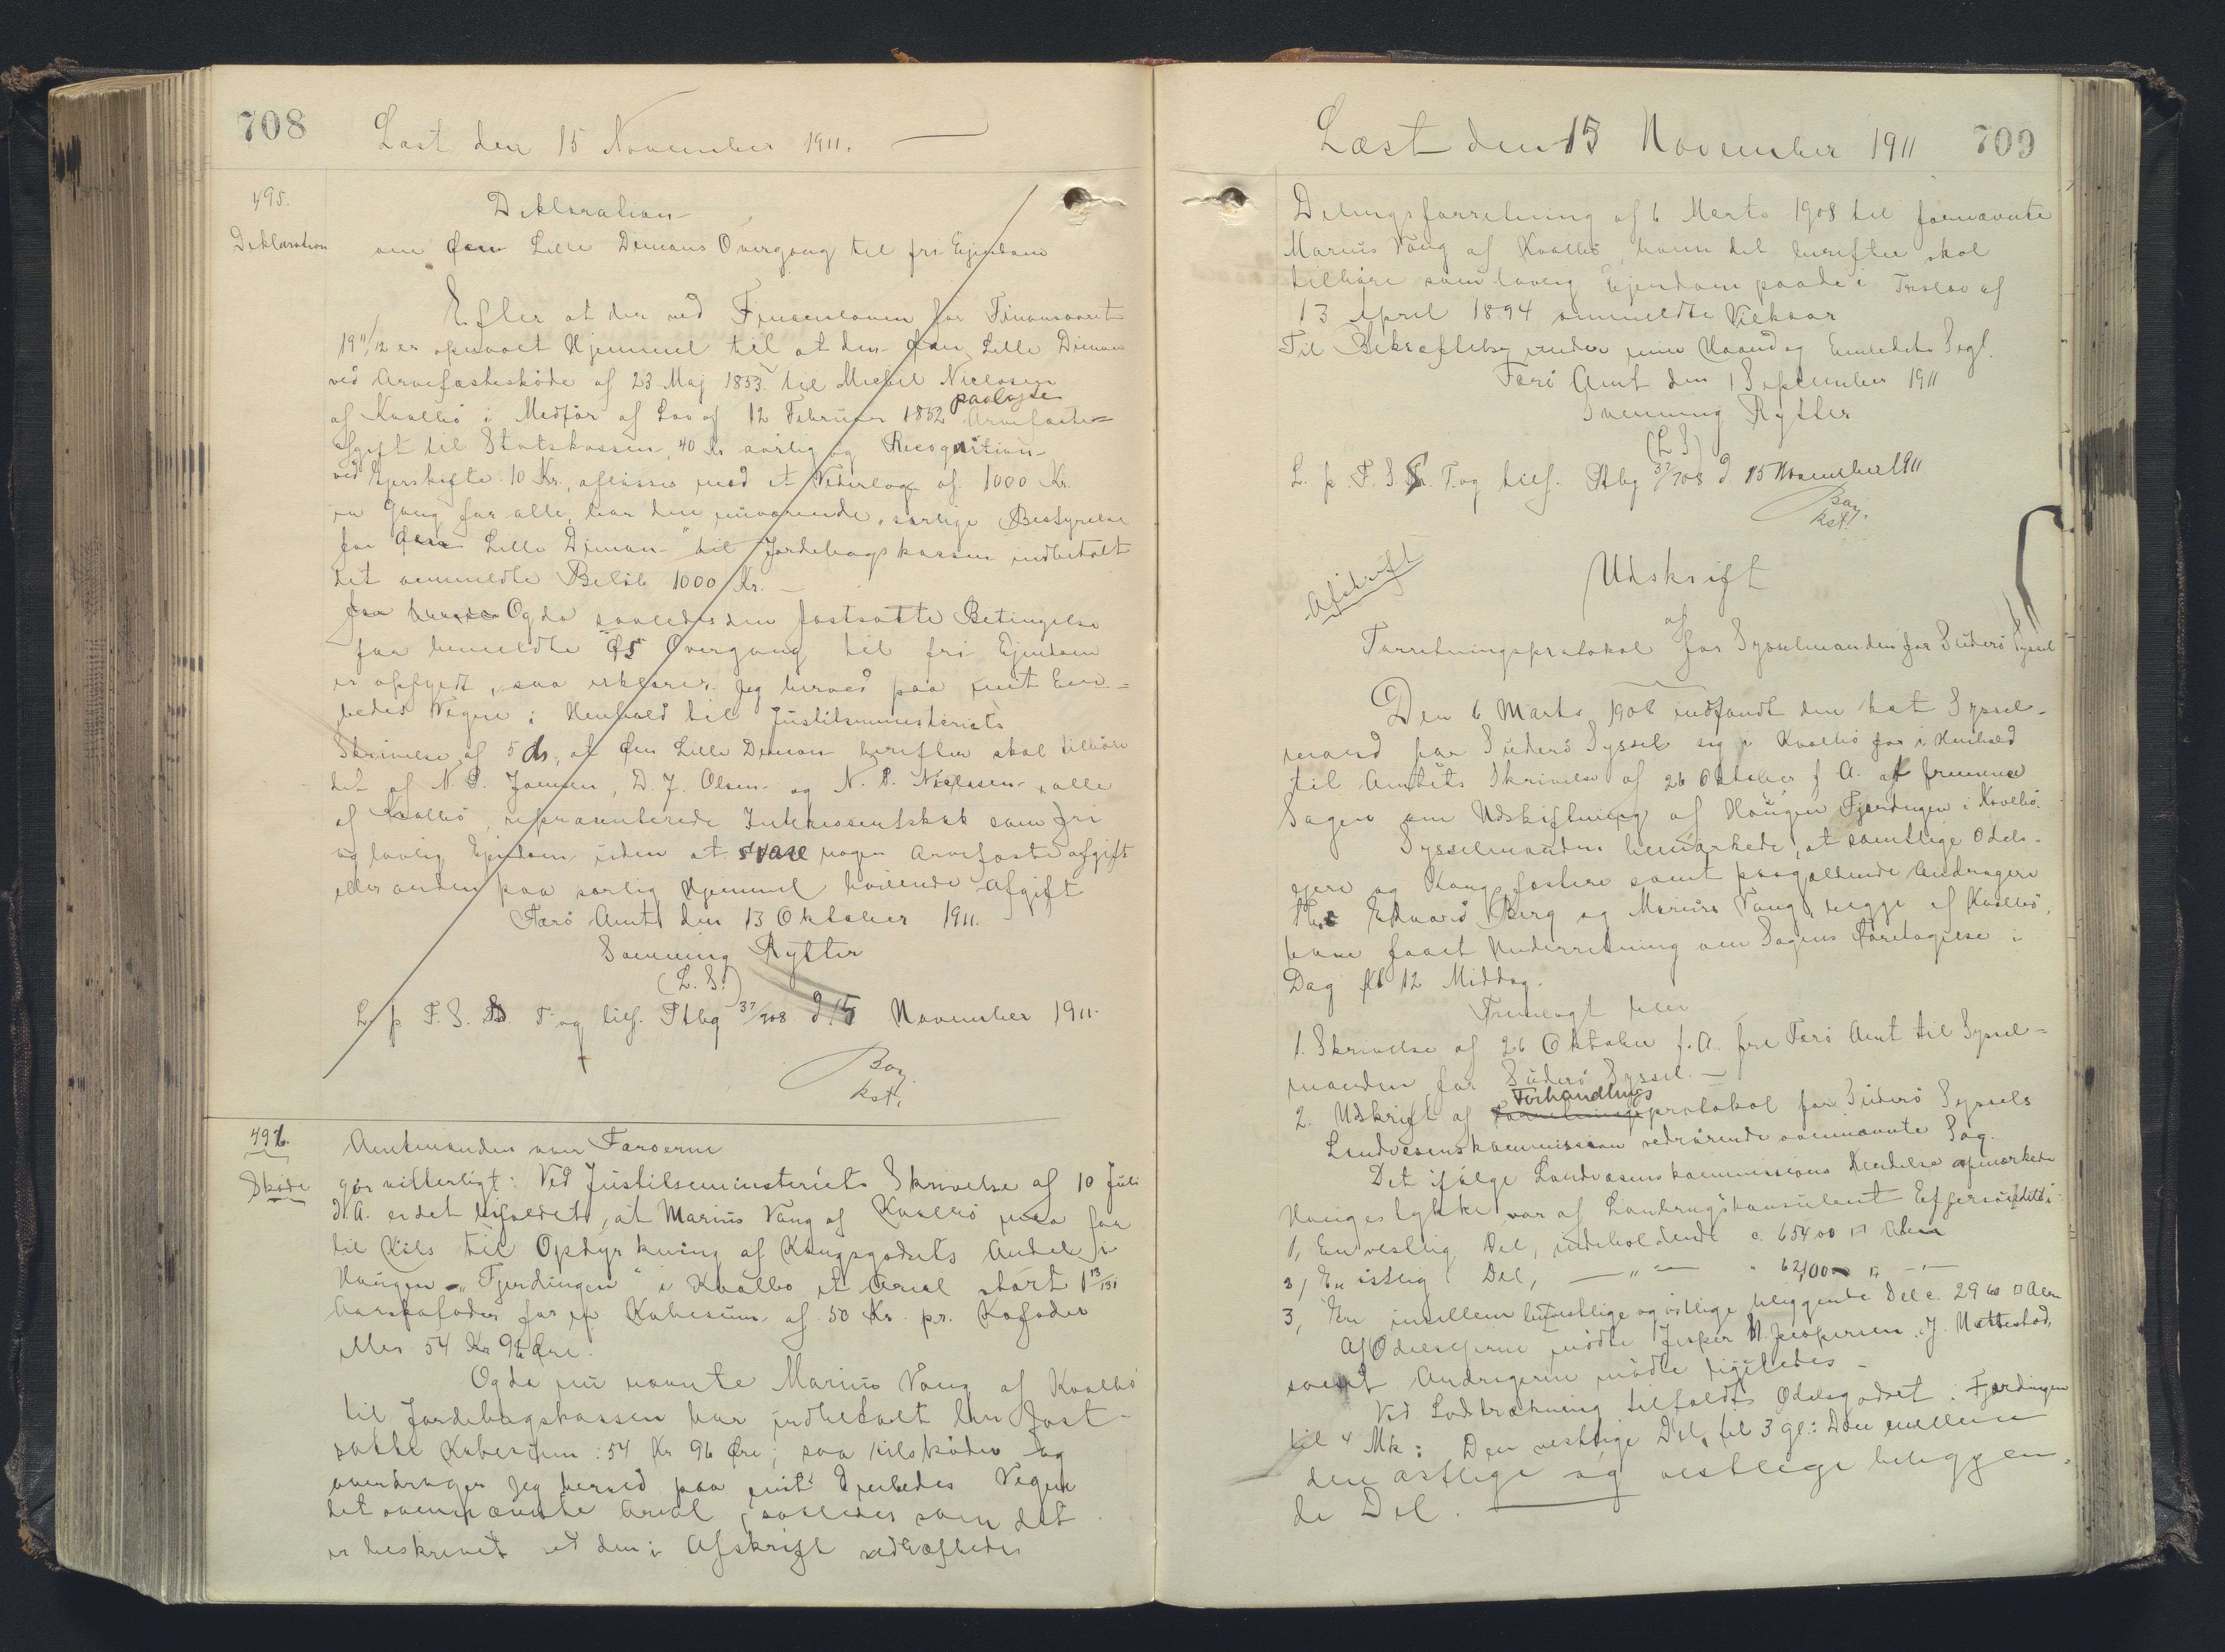 708
Læst den 15 November 1911.
495.
Deklaration
Deklaration
om Øen Lille Dimons Overgang til fri Ejendom
Efter at der ved Finansloven for Finansaaret
19 11/12 er opnaaet Hjemmel til at den Øen Lille Dimon
ved Arvefæsteskøde af 23 Maj 1853 til Michel Nielsen
af Kvalbø i Medfør af Lov af 12 Februar 1852 paalagte Arvefæste=
afgift til Statskassen, 40 Kr aarlig og Recognition
ved Ejerskifte 10 Kr., afløses mod et Vederlag af 1000 Kr.
en Gang for alle, har den nuværende, særlige Bestyrelse
for Øen Lille Dimon" til Jordebogskassen indbetalt
det ommeldte Beløb 1000 Kr.
Og da saaledes den fastsatte Betingelse
for bemeldte Øs Overgang til fri Ejendom
er opfyldt, saa erklærer Jeg herved paa mit Em=
bedes Vegne i Henhold til Justitsministeriets
Skrivelse af 5 ds, at Øen Lille Dimon herefter skal tilhøre
det af N. P. Joensen, D. J. Olsen og N. P. Nielsen, alle
af Kvalbø, repræsenterede Interessentskab som fri
og lovlig Ejendom uden at svare nogen Arvefæsteafgift
eller anden paa særlig Hjemmel hvilende Afgift
Færø Amt den 13 Oktober 1911.
Svenning Rytter
(L. S.)
L. p F. S. Ts. T. og tilf. Ptbg 37/708 d. 15 November 1911.
Bay
kst.
496.
Skøde
Amtmanden over Færøerne
gør vitterligt: Ved Justitsministeriets Skrivelse af 10 Juli
d. A. er det bifaldet, at Marius Vang af Kvalbø maa faa
til Købs til Opdyrkning af Kongsgodsets Andel i
Haugen "Fjerdingen" i Kvalbø et Areal stort 1 13/131
Aarskofoder for en Købesum af 50 Kr. pr. Kofoder
eller 54 Kr 96 Øre.
Og da nu nævnte Marius Vang af Kvalbø
til Jordebogskassen har indbetalt den fast-
satte Købesum: 54 Kr 96 Øre; saa tilskøder og
overdrager Jeg herved paa mit Embedes Vegne
det ovennævnte Areal, saaledes som det
er beskrevet ved den i Afskrift vedhæftede
Læst den 15 November 1911
709
Delingsforretning af 6 Marts 1908 til fornævnte
Marius Vang af Kvalbø, hvem det herefter skal
tilhøre som lovlig Ejendom paa de i Lov af
13 April 1894 ommeldte Vilkaar
Til Bekræftelse under min Haand og Embedets Segl.
Færø Amt den 1 September 1911
Svenning Rytter
(L S)
L. p. F. S. Ts. T. og tilf. Ptbg 37/708 d. 15 November 1911
Bay.
kst.
Afskrift
Udskrift
af
Forretningsprotokol for Sysselmanden for Suderø Syssel
Den 6 Marts 1908 indfandt den kst Syssel-
mand for Suderø Syssel sig i Kvalbø for i Henhold
til Amtets Skrivelse af 26 Oktober f. A. at fremme
Sagen om Udskiftning af Haugen Fjerdingen i Kvalbø.
Sysselmanden bemærkede, at samtlige Odels-
ejere og Kongsfæstere samt paagældende Andragere
Edvard Berg og Marius Vang, begge af Kvalbø,
have faaet Underretning om Sagens Foretagelse i
Dag Kl 12 Middag.
Fremlagt blev
1. Skrivelse af 26 Oktober f. A. fra Færø Amt til Syssel=
manden for Suderø Syssel.
2. Udskrift af Forhandlingsprotokol for Suderø Syssels
Landvæsenskommission vedrørende ovennævnte Sag.
Det ifølge Landvæsenskommissions Kendelse afmærkede
Haugestykke var af Landbrugskonsulent Effersøe delt i
1, En vestlig Del, indeholdende c. 65400 □ Alen
2, En østlig Del, — " — " 62100 □ — " —
3, En imellem den vestlige og østlige beliggende Del c. 2960 □ Alen
Af Odelsejerne mødte Jesper N. Jespersen, J. Mattestod,
samt Andragerne mødte ligeledes
Ved Lodtrækning tilfaldt Odelsgodset i Fjerdingen
til 4 Mk: Den vestlige Del, til 3 gl: Den mellem
den østlige og vestlige beliggen-
de Del.